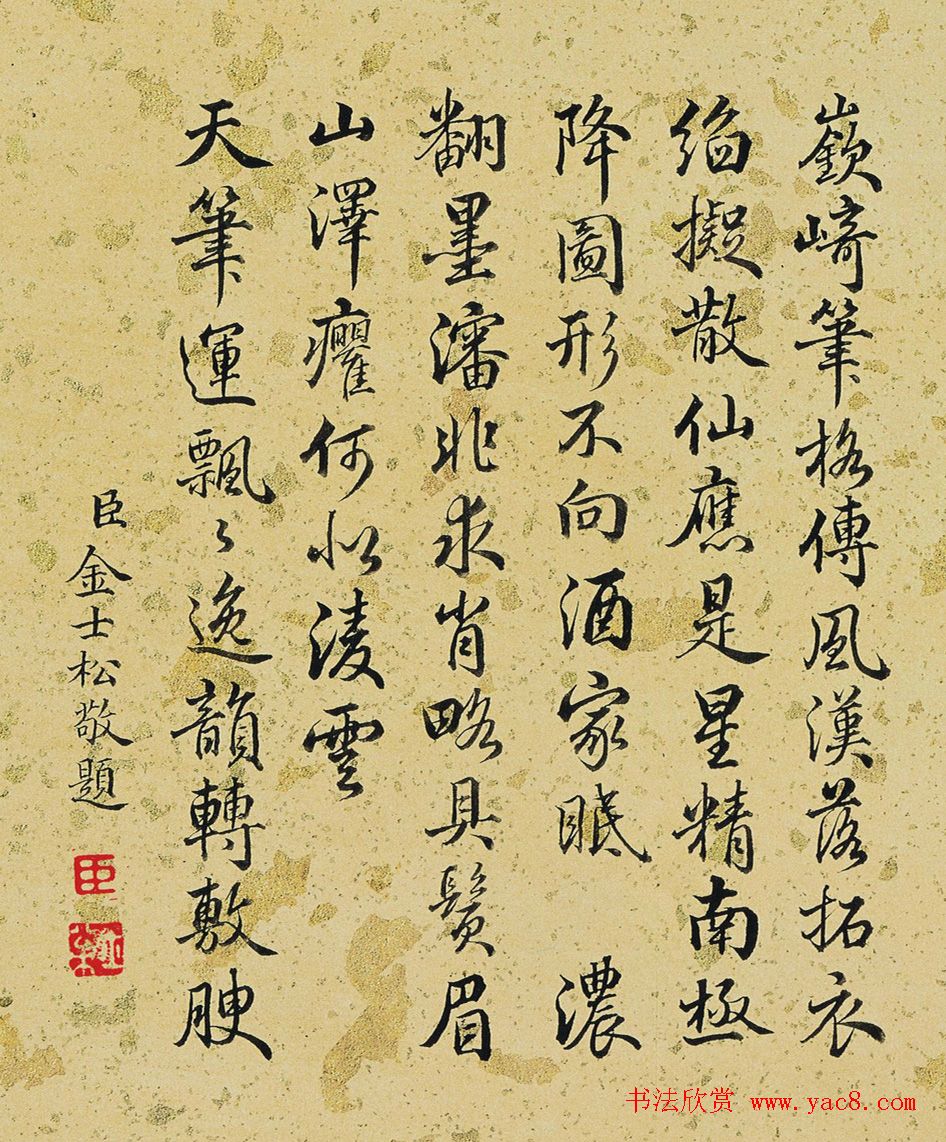 嶔崎筆格傳風漢落拓衣
縚擬散仙應是星精南極
降圖形不向酒家眠　濃
翻墨瀋非求肖略具鬢眉
山澤癯何似淩雲
天筆運飄〻逸韻轉敷腴
臣金士松敬題
臣
书法欣赏 www.yac8.com